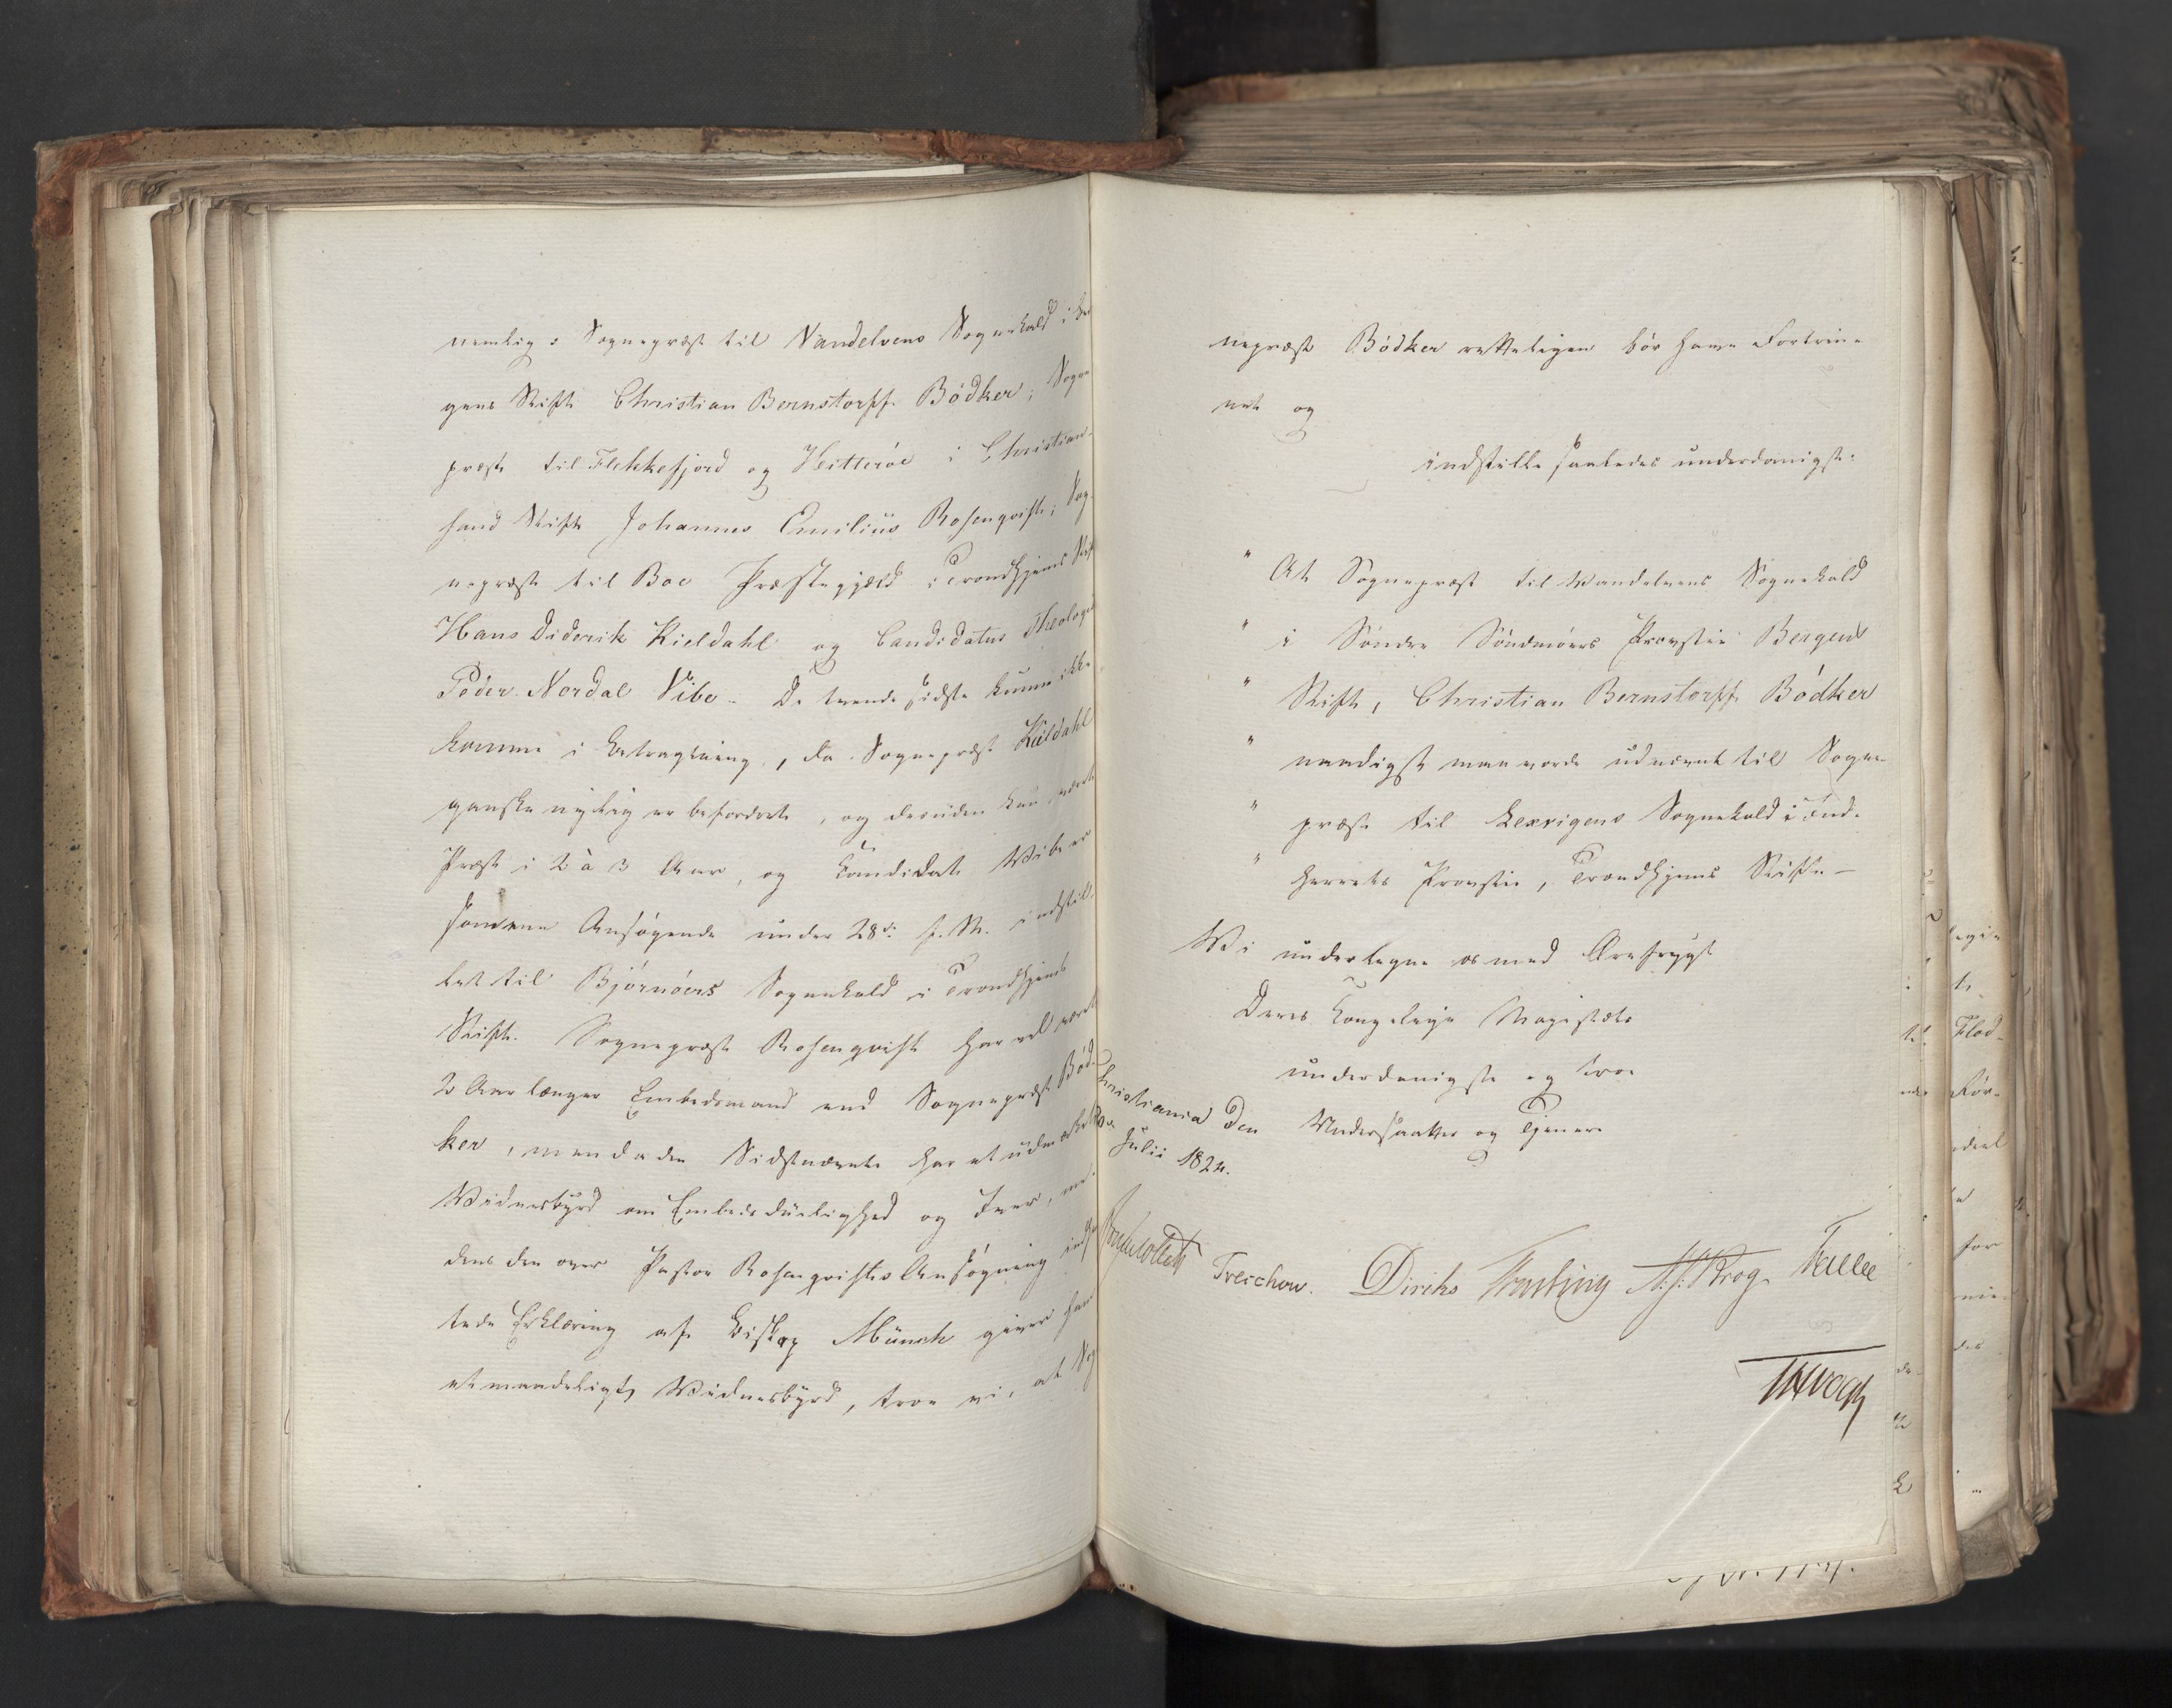 nemlig: Sognepræst til Vandelvens Sognekald i Ber
gens Stift Christian Bernstorff Bödker; Sogne
præst til Flekkefjord og Hitteröe i Christian-
sand Stift Johannes Emilius Rosenqvist; Sog-
nepræst til Boe Præstegjæld i Trondhjems Stift
Hans Diderik Kieldahl og Candidatus Theologiæ
Peder Nordal Vibe. De tvende sidste kunne ikke
komme i Betragtning, da Sognepræst Kieldahl
ganske nylig er befordret, og desuden kun været
Præst i 2 à 3 Aar, og Candidat Wibe er
som eene Ansøgende under 28de f. M. indstil-
let til Björnöers Sognekald i Trondhjems
Stift. Sognepræst Rosenqvist har vel været
2 Aar længer Embedsmand end Sognepræst Böd-
ker, men da den Sidstnævnte har et udmærket
Widnesbyrd om Embedsduelighed og Iver, me-
dens den over Pastor Rosenqvistes Ansøgning indhen
tede Erklæring af Biskop Münch giver ham
et maadeligt Widnesbyrd, troe vi, at Sog
nepræst Bödker retteligen bör have Fortrin-
net og
indstille saaledes underdanigst:
" At Sognepræst til Wandelvens Sognekald
" i Söndre Söndmöers Provstie Bergens
" Stift, Christian Bernstorff Bödker
" naadigst maa vorde udnævnt til Sogne-
" præst til Lexvigens Sognekald i Ind-
" herreds Provstie, Trondhjems Stift.—
Wi underlegne os med Ærefrygt
Deres Kongelige Majestæts
underdanigste og troe
Christiania den Undersaatter og Tjenere
Julii 1824.
Treschow. Diriks Krog. Fasting